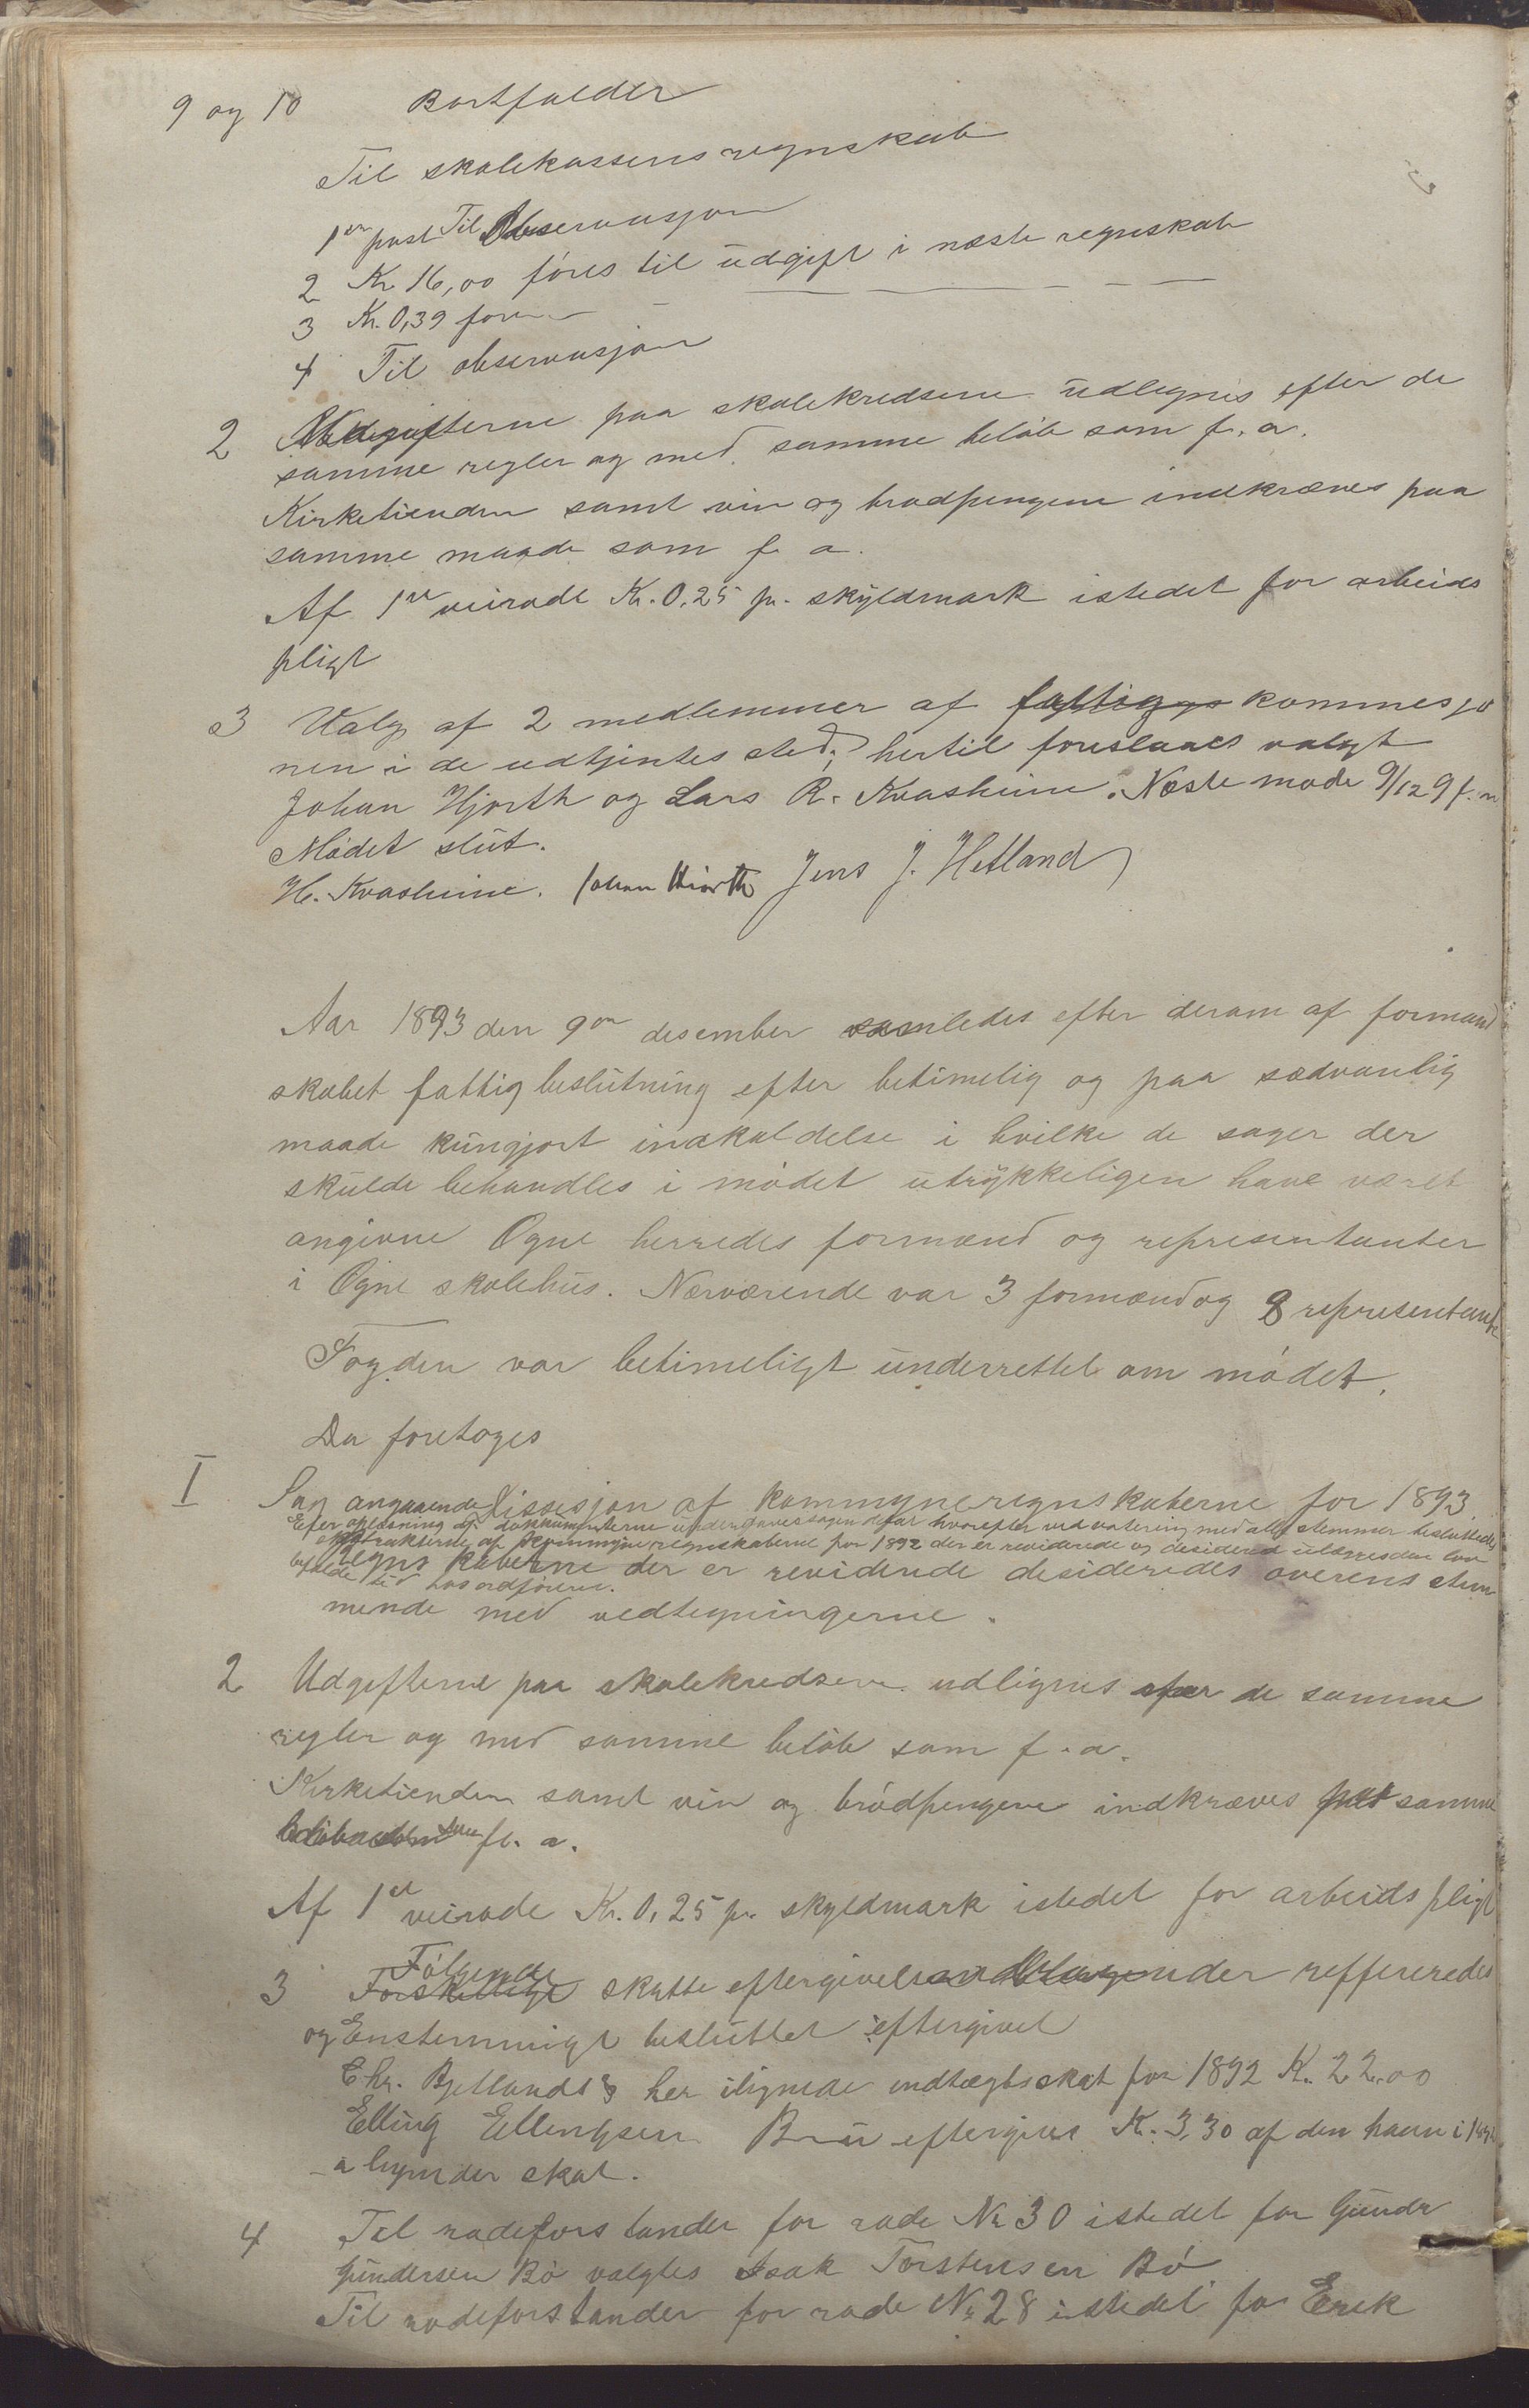 9 og 10 Bortfalder
Til skolekassens regnskab
1ste post Til Observasjon
2 Kr 16,00 føres til udgift i næste regnskab
3 Kr. 0,39 føres — — — —
4 Til observasjon
2 Udgifterne paa skolekredsene udlignes efter de
samme regler og med samme beløb som f. a.
Kirketienden samt vin og brødpengene indkræves paa
samme maade som f. a.
Af 1ste veirode Kr. 0,25 pr. skyldmark istedet for arbeids
pligt
3 Valg af 2 medlemmer af fattigs kommesjo
nen i de udtjentes sted; hertil foreslaaes valgt
Johan Hjorth og Lars R. Kvasheim. Næste møde 9/12 9 f. m
Mødet slut.
H. Kvasheim. Johan Hiorth Jens J. Hetland
Aar 1893 den 9de desember samledes efter derom af formand
skabet fattig beslutning efter betimelig og paa sædvanlig
maade kungjort indkaldelse i hvilke de sager der
skulde behandles i mødet utrykkeligen have været
angivne Ogne herredes formænd og representanter
i Ogne skolehus. Nærværende var 3 formænd og 8 representante
Fogden var betimeligt underrettet om mødet.
Da foretoges
I Sag angaaende Dissesjon af kommuneregnskaberne for 1893.
Efter oplæsning af dokkumenterne hvorefter ved votering med alle stemmer besluttedes
af kommuneregnskaberne for 1892 der er reviderede og desidered
regnskaberne der er reviderede desideredes overens stem
befalede tid hos ordføreren.
mende med vedtegningerne.
2 Udgifterne paa skolekredsene udlignes efter de samme
regler og med samme beløb som f. a.
Kirketienden samt vin og brødpengene indkræves paa samme
som f. a.
Af 1ste veirode Kr. 0,25 pr. skyldmark istedet for arbeids pligt
Følgende
3 Forskjellige skatte eftergivels reffereredes
og Enstemmigt besluttet eftergivet
Chr. Bjellands her ilignede indtægtsskat for 1892 Kr. 22.00
Elling Ellingsen Bru eftergives Kr. 3,30 af den ham i
skat.
4 Til rodeforstander for rode No 30 istedet for Gunder
Gundersen Bø valgtes Isak Torstensen Bø
Til rodeforstander for rode No 28 istedet for Erek